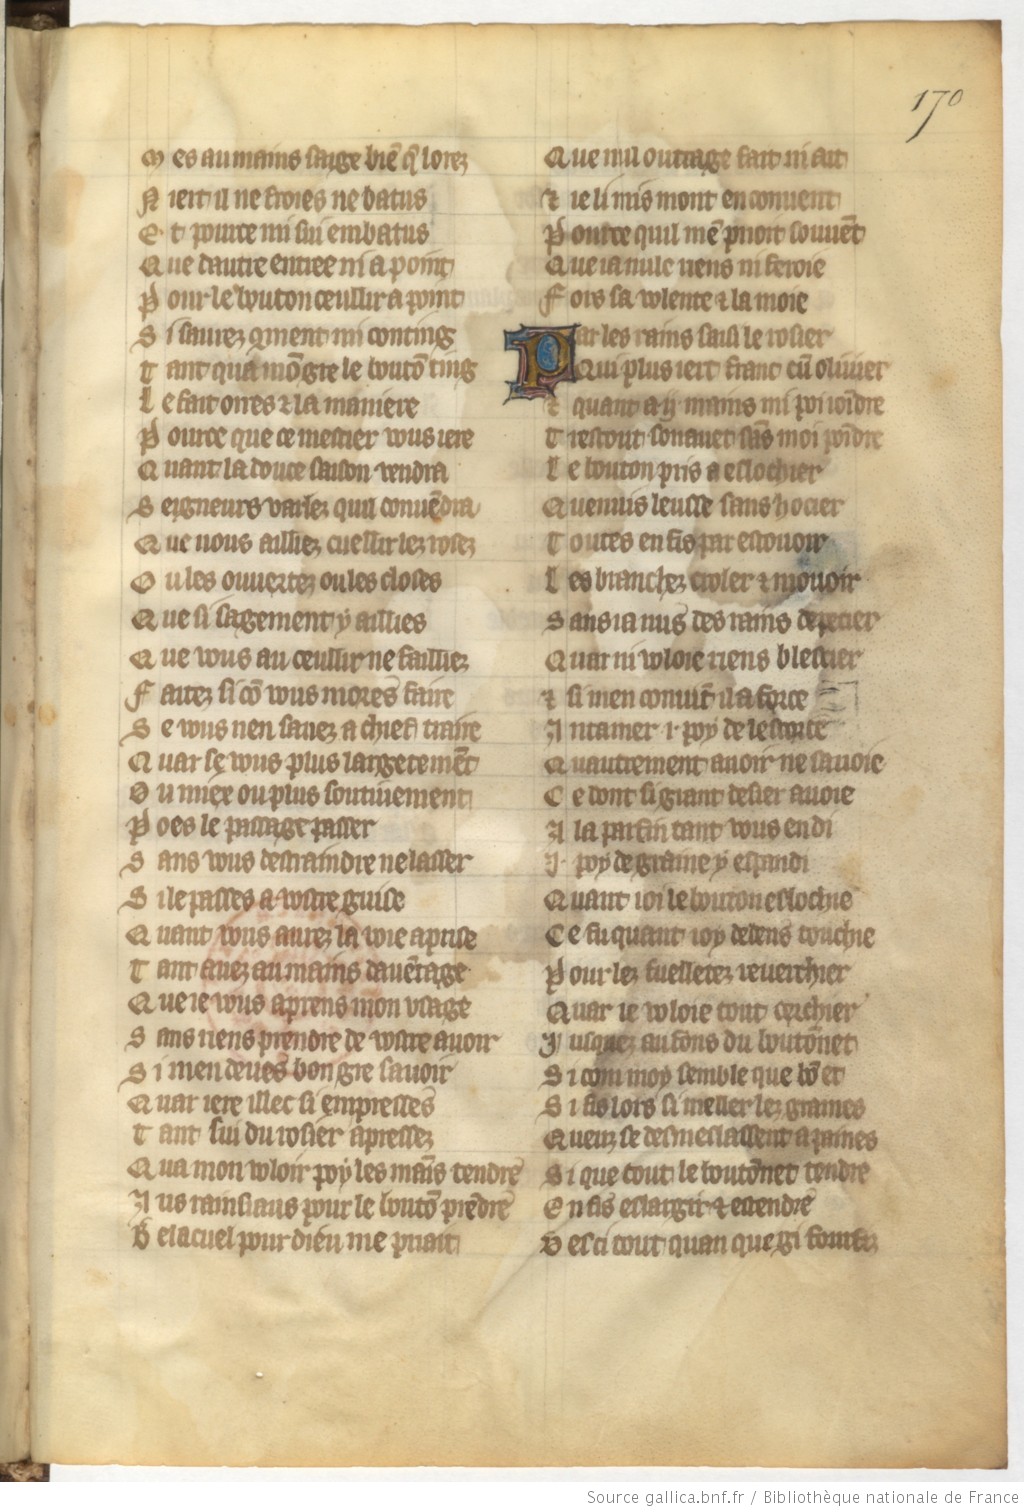 170
Mes au mains saige biẽ q̃ lorez
Niert il ne froies ne batus
Et pource mi sui embatus
Que dautre entree ni a point
Pour le bouton ceullir a point
Si saurez qment mi conting
Tant qua mõ gre le boutõ ting
Le fait orres & la maniere
Pource que ce mestier vous iere
Quant la douce saison vendra
Seigneurs varlez quil conuẽdra
Que vous ailliez cueillir lez rosez
Ou les ouuertez ou les closes
Que si sagement y aillies
Que vous au ceullir ne failliez
Faitez si cõ vous mores faire
Se vous nen sauez a chief traire
Quar se vous plus largetemẽt
Ou miex ou plus soutiuement
Poes le passage passer
Sans vous destraindre ne lasser
Si le passes a vostre guise
Quant vous aurez la voie aprise
Tant auez au mains dauẽtage
Que ie vous aprens mon vsage
Sans riens prendre de vostre auoir
Si men deues bon gre sauoir
Quar iere illec si empresses
Tant sui du rosier apressez
Qua mon vloir poy les maĩs tendre
Aus rainsiaus pour le boutõ prẽdre
Belacuel pour dieu me priait
Que nul outrage fait ni ait
& ie li mis mont en conuent
Pource quil mẽ prioit souuẽt
Que ia nule riens ni feroie
Fors sa volente & la moie
Par les rains saisi le rosier
Qui plus iert franc cũ oliuier
& quant a ij mains mi poi ioĩdre
Trestout souauet sãs moi poĩdre
Le bouton pris a eslochier
Quenuis leusse sans hocier
Toutes en fis par estouoir
Les branchez croler & mouoir
Sans ia nus des rains depecier
Quar ni vloie riens blescier
& si men conuĩt il a force
Antamer .i. poy de lescorce
Quautrement auoir ne sauoie
Ce dont si grant desier auoie
A la parfin tant vous en di
.I. poy de graine y espandi
Quant ioi le bouton eslochie
Ce fu quant ioy dedens touchie
Pour lez fuelletez reuerchier
Quar ie vloie tout cerchier
Jusquez au fons du boutõnet
Si com moy semble que bõ et
Si fis lors si meller lez graines
Queuz se desmeslassent a paines
Si que tout le boutõnet tendre
En fis eslargir & estendre
Vesci tout quan que gi